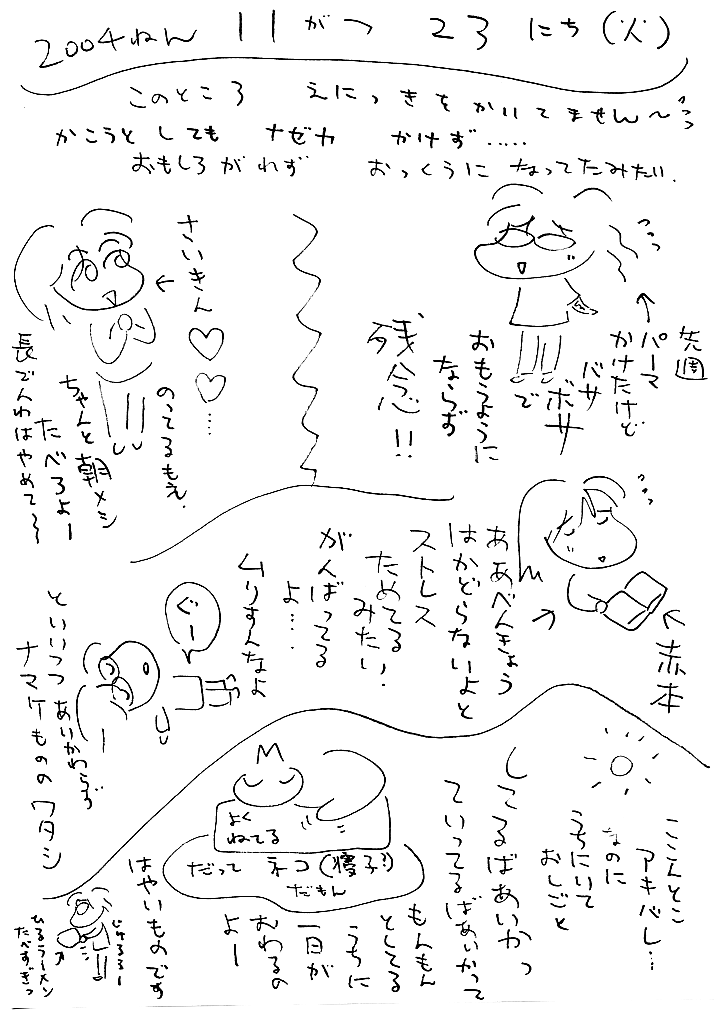 2004ねん 11がつ 23にち(火)
このところ えにっきを かいてません〜
かこうと しても ナゼカ かけず……
おもしろがれず おっくうに なってたみたい.
先週
パーマ
かけたけど
バサ
ボサ
で
おもうように
ならず
残念!!
さいきん♡♡……
のってるもえ.
ちゃんと朝メシ
たべろよー
長でんわはやめて〜
赤本
ああべんきょう
はかどらないよと
ストレス
ためてる
みたい!
がんばってる
よ……
ムリすんなよ
ぐー
といいつつ あいかわらず
ナマケものの ワタシ
ここんとこ
アキバレ…
なのに
うちにいて
おしごと
してるばあいかっ
ていってるばあいかって
もんもん
としてる
うちに
一日が
おわるの
よー
よく
ねてる
だって ネコ(寝子?)
だもん
はやいものです
じゅるるー
ひるラーメン
たべすぎっ